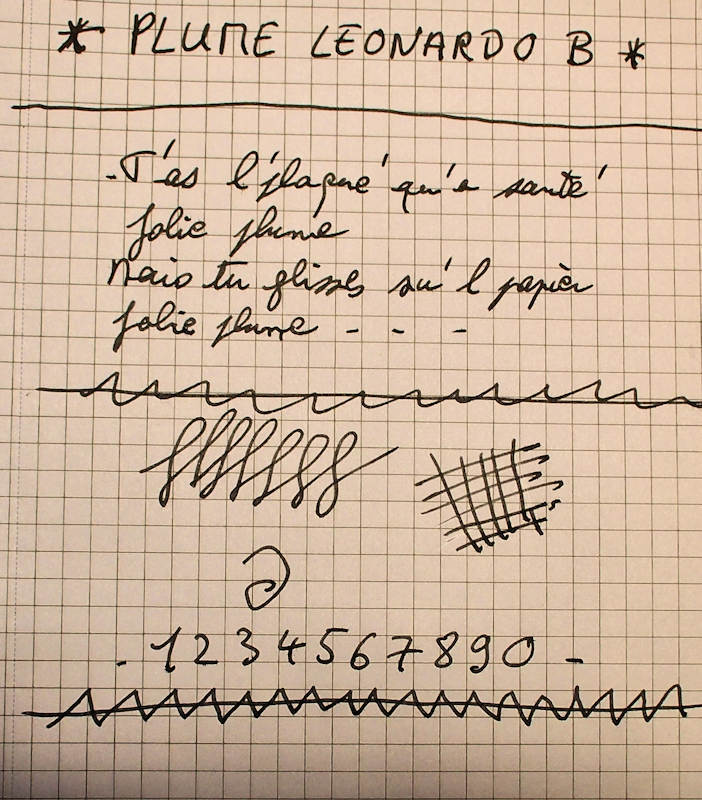 * PLUME LEONARDO B *
- T'as l'plaqué qu'a sauté
Jolie plume
Mais tu glisses su' l papier
Jolie plume - - -
- 1234567890 -